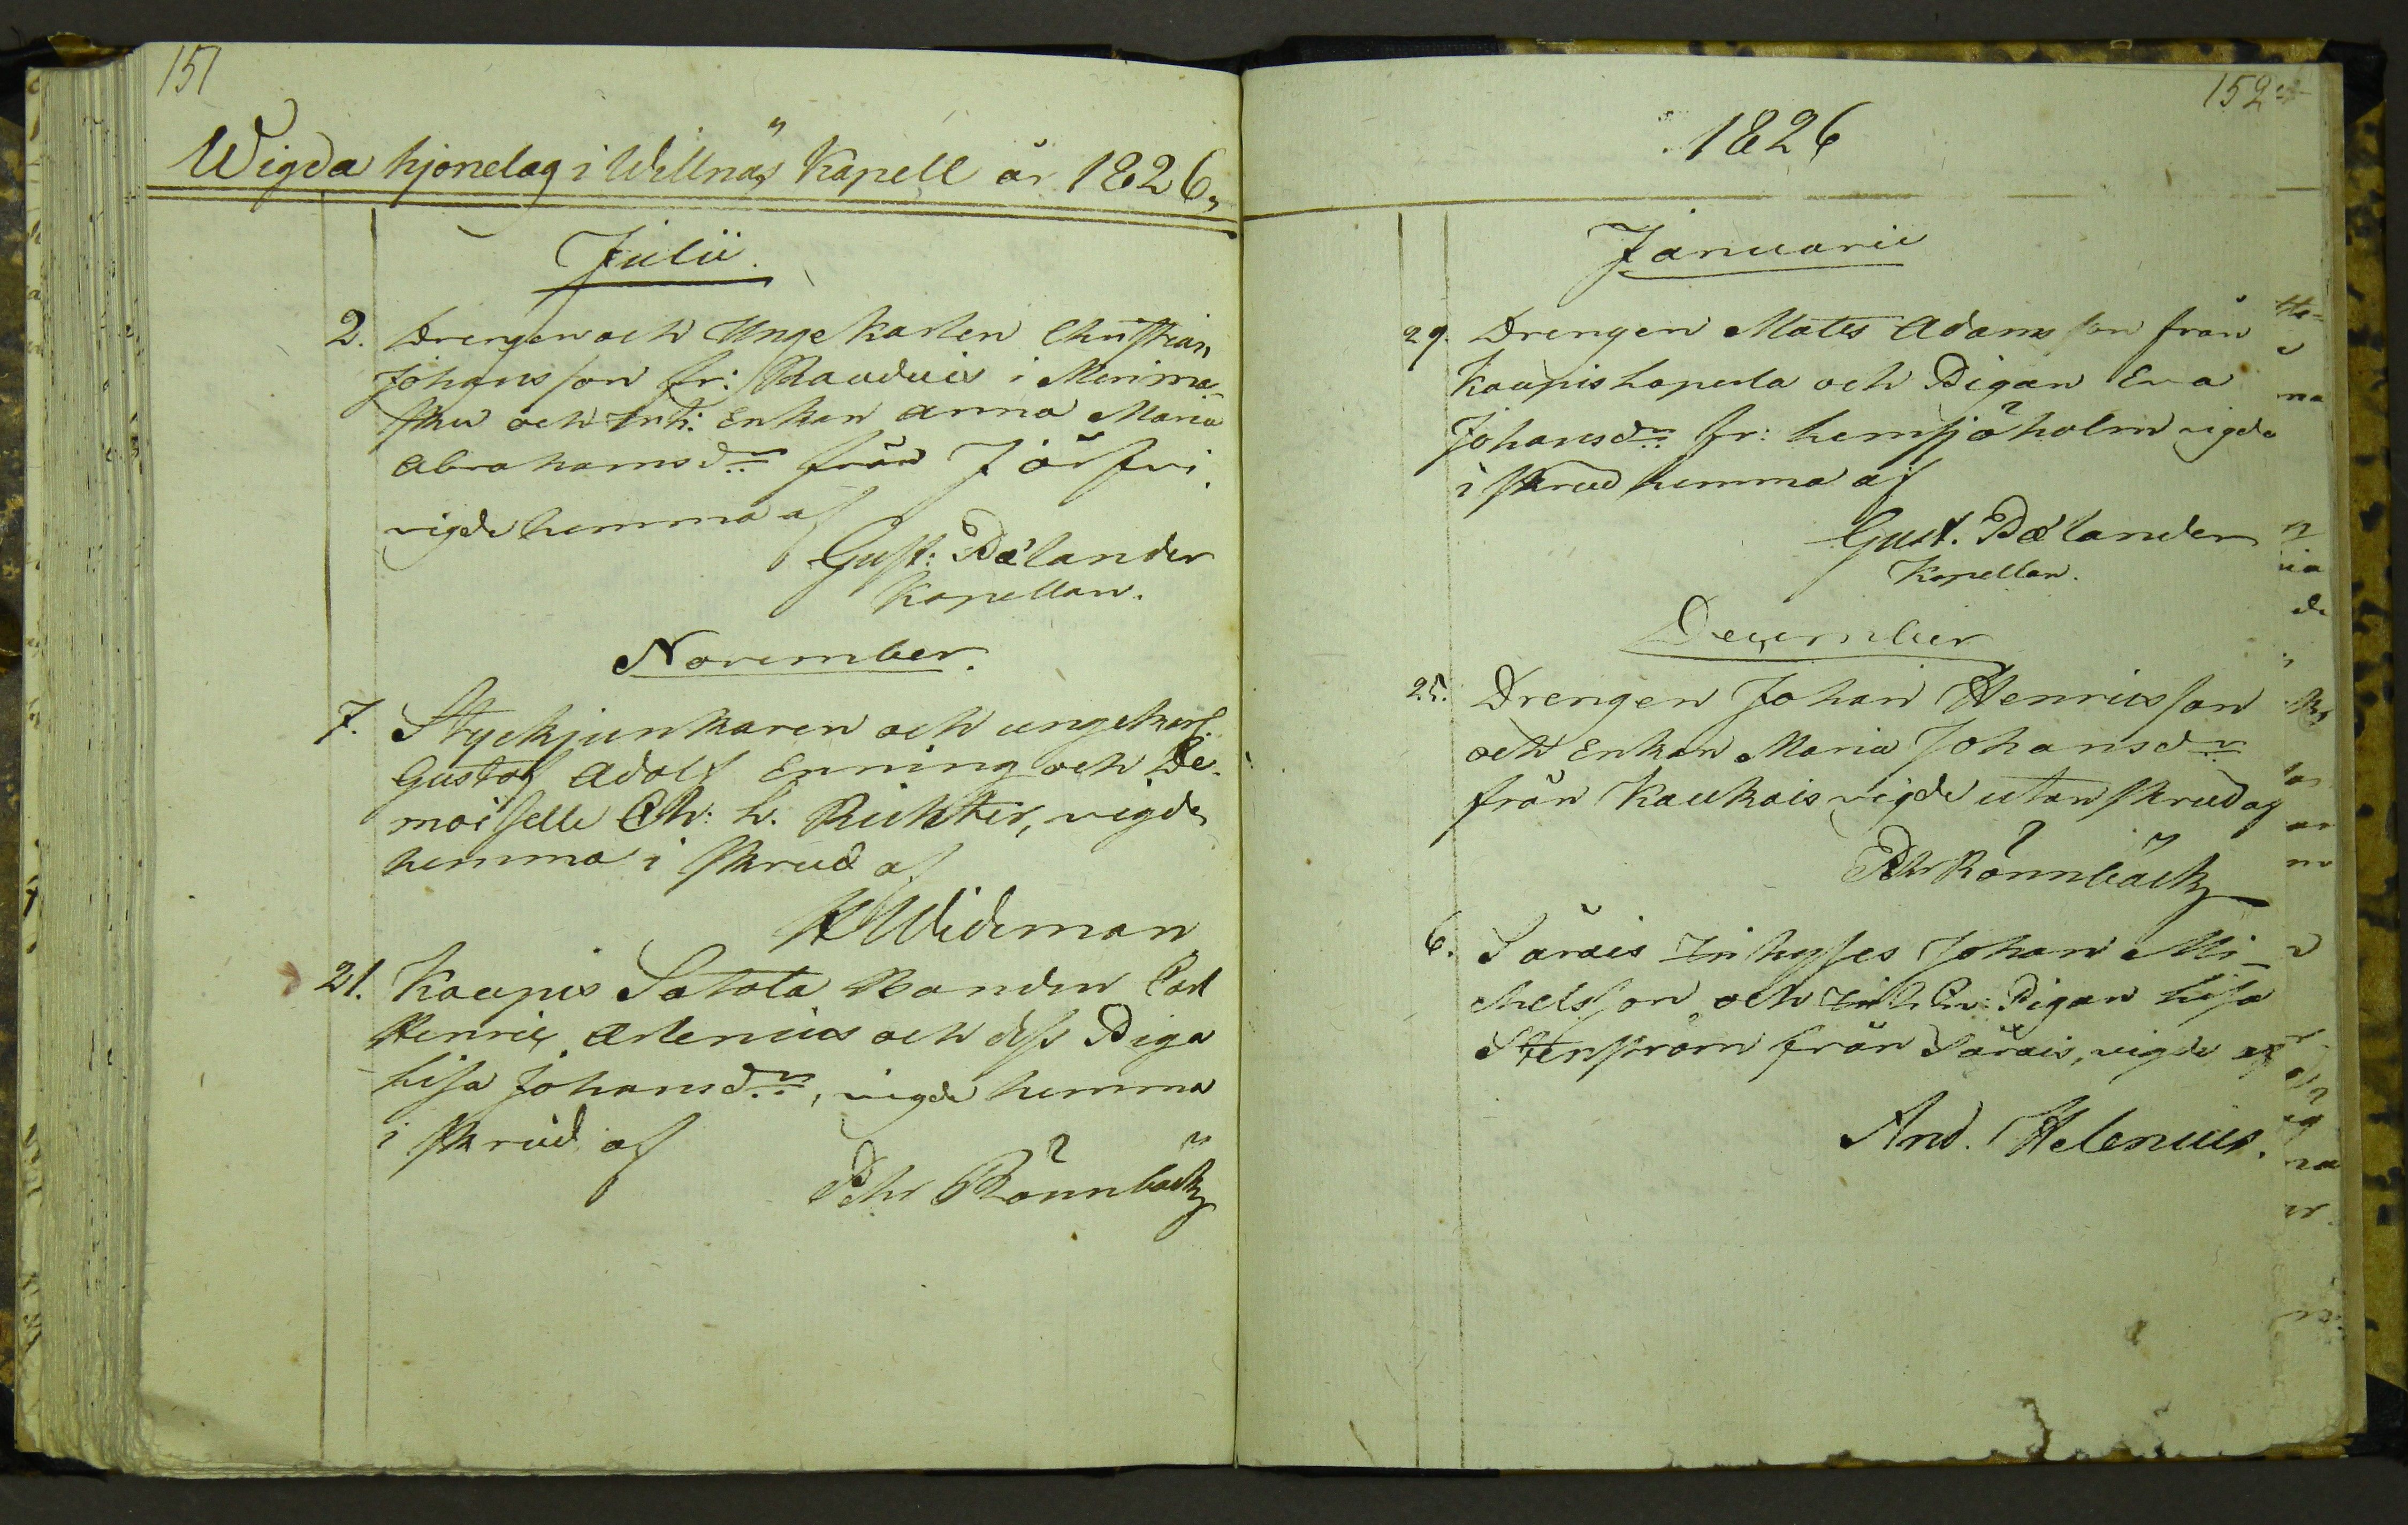 151
Wigda hjonelag i Willnäs Kapell år 1826,
Julii.
2. Drengen och Ungekarlen Christian
Johansson fr: Rauduis i Merima=
sku och Inh: Enkan Anna Maria
Abrahamsdr från Järfvi
vigde hemma af
Gust: Pælander
Kapellan.
November.
7. Styckjunkaren och ungekarl.
Gustof Adolf Enning och De-
moiselle Ch: L. Richter, vigde
hemma i skrud af
K Wideman
21. Kaupis Satola Bonden Carl
Henric Arlenius och dess Piga
Lisa Johansdr, vigde hemma
i skrud af
Pehr Rönnbäck
152
1826
Januarii
29. Drengen Mats Adamsson från
Kaupis Lapila och Pigan Eva
Johansdr fr: Lemsjöholm vigda
i skrud hemma af
Gust. Pælander
Kapellan.
December
25. Drengen Johan Henricsson
och Enkan Maria Johansdr
från Kaukois vigde utan skrud af
Phr Rönnbäck
6. Särais Inhyses Johan Mi-
chelsson och Pigan Lisa
Stenström från Särais, vigde af
And. Helenius.